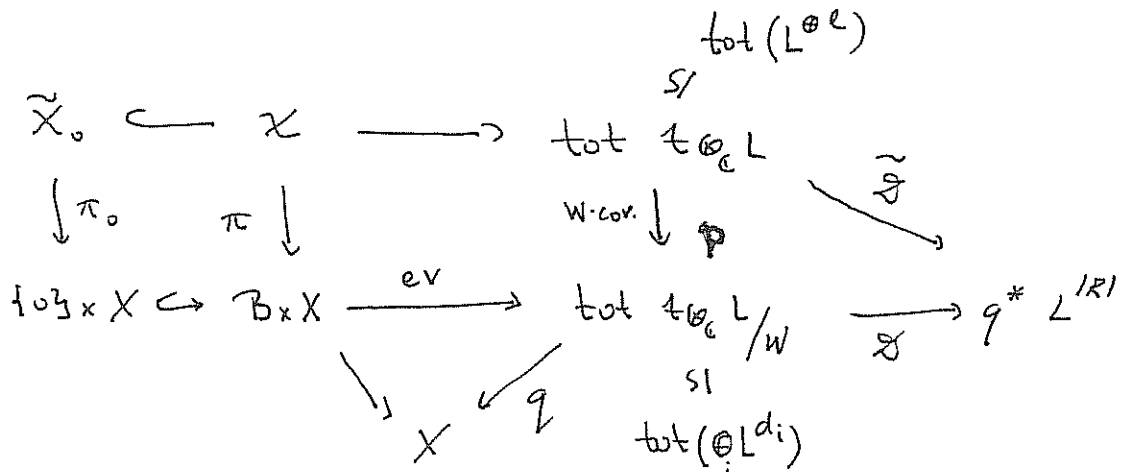 tot (L^{⊕ℓ})
S/
X̃_0 ⟵ 𝒳 ⟶ tot t ⊗_ℂ L
↓π_0 π↓ W-cov. ↓ p 𝒟̃
{0} × X ↪ B × X ev ⟶ tot t⊗_ℂ L/W ⟶ q* L^{|R|}
𝒟
q S|
X tot (⊕_i L^{d_i})